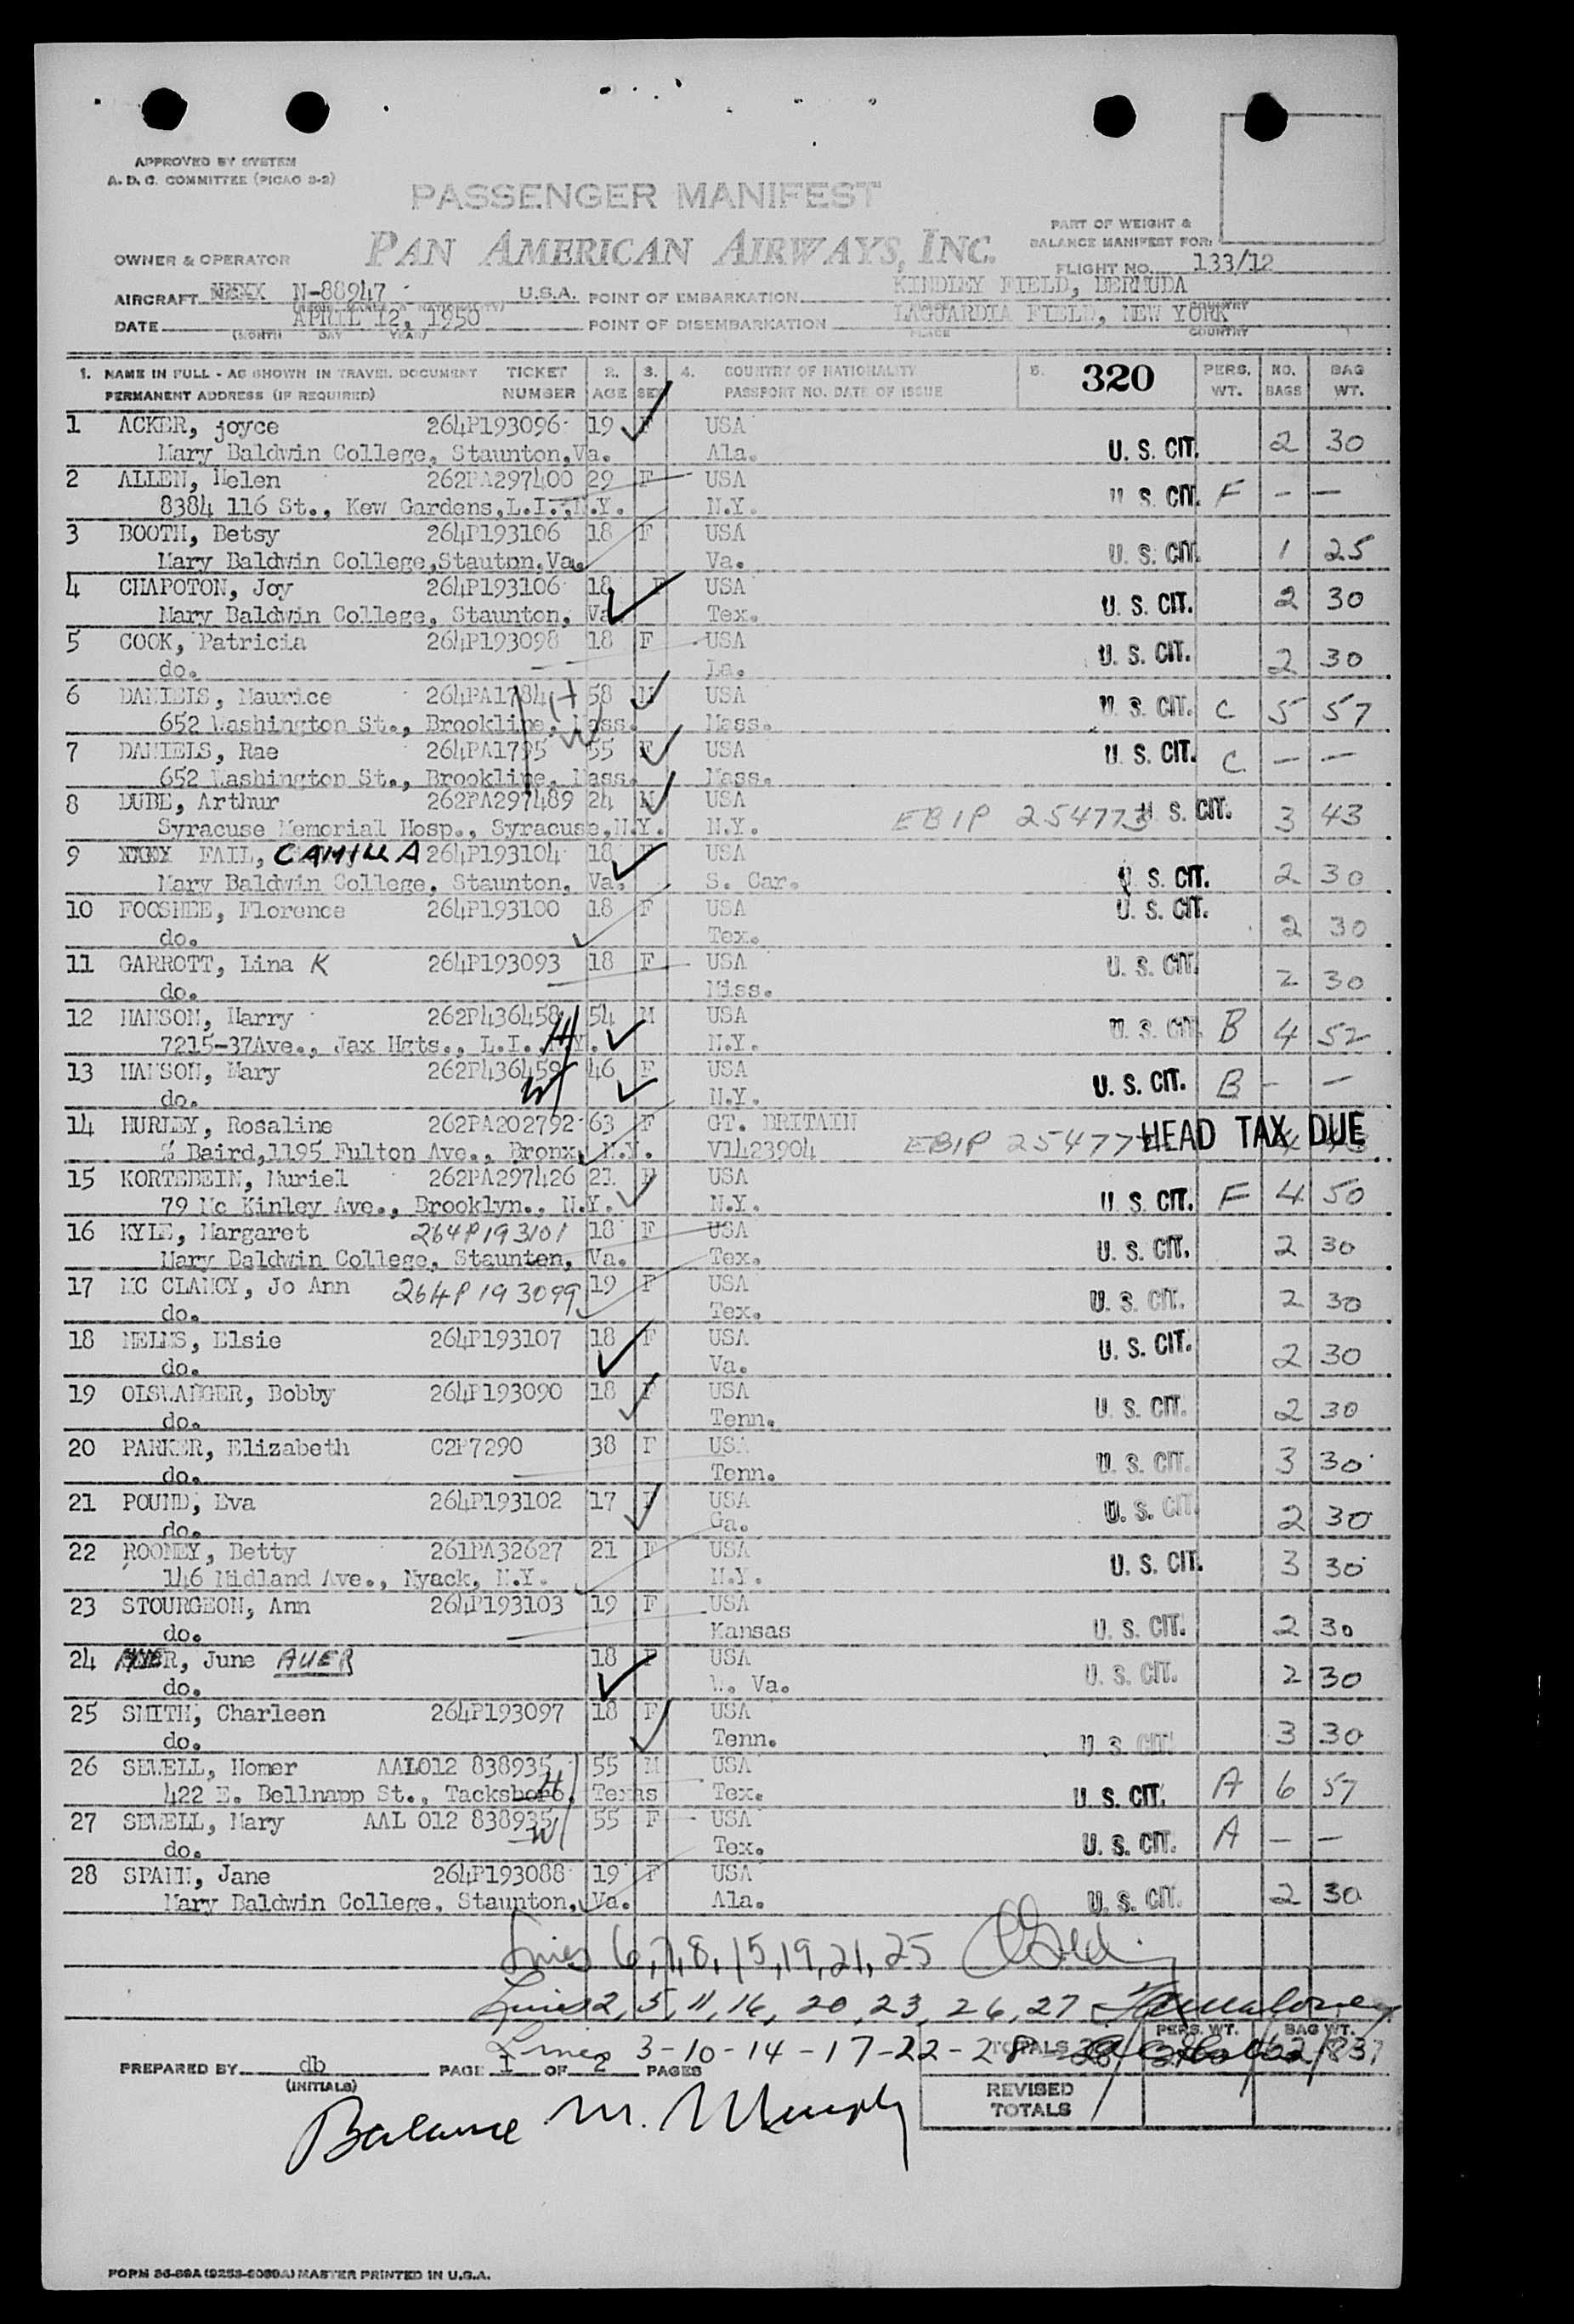 APPROVED BY SYSTEM
A. D. C. COMMITTEE (PICAO 3-2)
PASSENGER MANIFEST
PART OF WEIGHT &
BALANCE MANIFEST FOR:
OWNER & OPERATOR PAN AMERICAN AIRWAYS, INC.
FLIGHT NO. 133/12
AIRCRAFT N-88947 U.S.A. POINT OF EMBARKATION KINDLEY FIELD, BERMUDA
DATE APRIL 12, 1950 POINT OF DISEMBARKATION LAGUARDIA FIELD, NEW YORK
(MONTH DAY YEAR) PLACE COUNTRY
1. NAME IN FULL - AS SHOWN IN TRAVEL DOCUMENT TICKET 2. 3. 4. COUNTRY OF NATIONALITY 5. 320 PERS. NO. BAG
PERMANENT ADDRESS (IF REQUIRED) NUMBER AGE SEX PASSPORT NO. DATE OF ISSUE WT. BAGS WT.
1 ACKER, joyce 264P193096 19 F USA
Mary Baldwin College, Staunton,Va. Ala. U. S. CIT. 2 30
2 ALLEN, Helen 262PA297400 29 F USA
8384 116 St., Kew Gardens,L.I.,N.Y. N.Y. U. S. CIT. F - -
3 BOOTH, Betsy 264P193106 18 F USA
Mary Baldwin College,Stauton,Va. Va. U. S. CIT. 1 25
4 CHAPOTON, Joy 264P193106 18 F USA
Mary Baldwin College, Staunton, Va. Tex. U. S. CIT. 2 30
5 COOK, Patricia 264P193098 18 F USA
do. La. U. S. CIT. 2 30
6 DANIELS, Maurice 264PA1784 H 58 M USA
652 Washington St., Brookline, Mass. Mass. U. S. CIT. C 5 57
7 DANIELS, Rae 264PA1795 W 55 F USA
652 Washington St., Brookline, Mass. Mass. U. S. CIT. C - -
8 DUBE, Arthur 262PA297489 24 M USA
Syracuse Memorial Hosp., Syracuse,N.Y. N.Y. EBIP 254773 U. S. CIT. 3 43
9 FAIL, CAMILLA 264P193104 18 F USA
Mary Baldwin College, Staunton, Va. S. Car. U. S. CIT. 2 30
10 FOOSHEE, Florence 264P193100 18 F USA
do. Tex. U. S. CIT. 2 30
11 GARROTT, Lina K 264P193093 18 F USA
do. Miss. U. S. CIT. 2 30
12 HANSON, Harry 262P436458 H 54 M USA
7215-37Ave., Jax Hgts., L.I. N.Y. N.Y. U. S. CIT. B 4 52
13 HANSON, Mary 262P436459 W 46 F USA
do. N.Y. U. S. CIT. B - -
14 HURLEY, Rosaline 262PA202792 63 F GT. BRITAIN
% Baird,1195 Fulton Ave., Bronx, N.Y. V1423904 EBIP 25477 HEAD TAX DUE
15 KORTEBEIN, Muriel 262PA297426 21 F USA
79 Mc Kinley Ave., Brooklyn., N.Y. N.Y. U. S. CIT. F 4 50
16 KYLE, Margaret 264P193101 18 F USA
Mary Baldwin College, Staunton, Va. Tex. U. S. CIT. 2 30
17 MC CLANCY, Jo Ann 264P193099 19 F USA
do. Tex. U. S. CIT. 2 30
18 NELMS, Elsie 264P193107 18 F USA
do. Va. U. S. CIT. 2 30
19 OLSWANGER, Bobby 264P193090 18 F USA
do. Tenn. U. S. CIT. 2 30
20 PARKER, Elizabeth C2P7290 38 F USA
do. Tenn. U. S. CIT. 3 30
21 POUND, Eva 264P193102 17 F USA
do. Ga. U. S. CIT. 2 30
22 ROONEY, Betty 261PA32627 21 F USA
146 Midland Ave., Nyack, N.Y. N.Y. U. S. CIT. 3 30
23 STOURGEON, Ann 264P193103 19 F USA
do. Kansas U. S. CIT. 2 30
24 June AUER 18 F USA
do. W. Va. U. S. CIT. 2 30
25 SMITH, Charleen 264P193097 18 F USA
do. Tenn. U. S. CIT. 3 30
26 SEWELL, Homer AAL012 838935 H 55 M USA
422 E. Bellnapp St., Tacksboro, Texas Tex. U. S. CIT. A 6 57
27 SEWELL, Mary AAL 012 838935 W 55 F USA
do. Tex. U. S. CIT. A - -
28 SPANN, Jane 264P193088 19 F USA
Mary Baldwin College, Staunton, Va. Ala. U. S. CIT. 2 30
Lines 6,7,8,15,19,21,25
Lines 2, 5, 11, 16, 20, 23, 26, 27
Lines 3-10-14-17-22-28
TOTALS 28 PERS. WT. BAG WT. 62 837
PREPARED BY db PAGE 1 OF 2 PAGES
(INITIALS)
REVISED
TOTALS
Balance M. Murphy
FORM 36-89A (9253-6089A) MASTER PRINTED IN U.S.A.